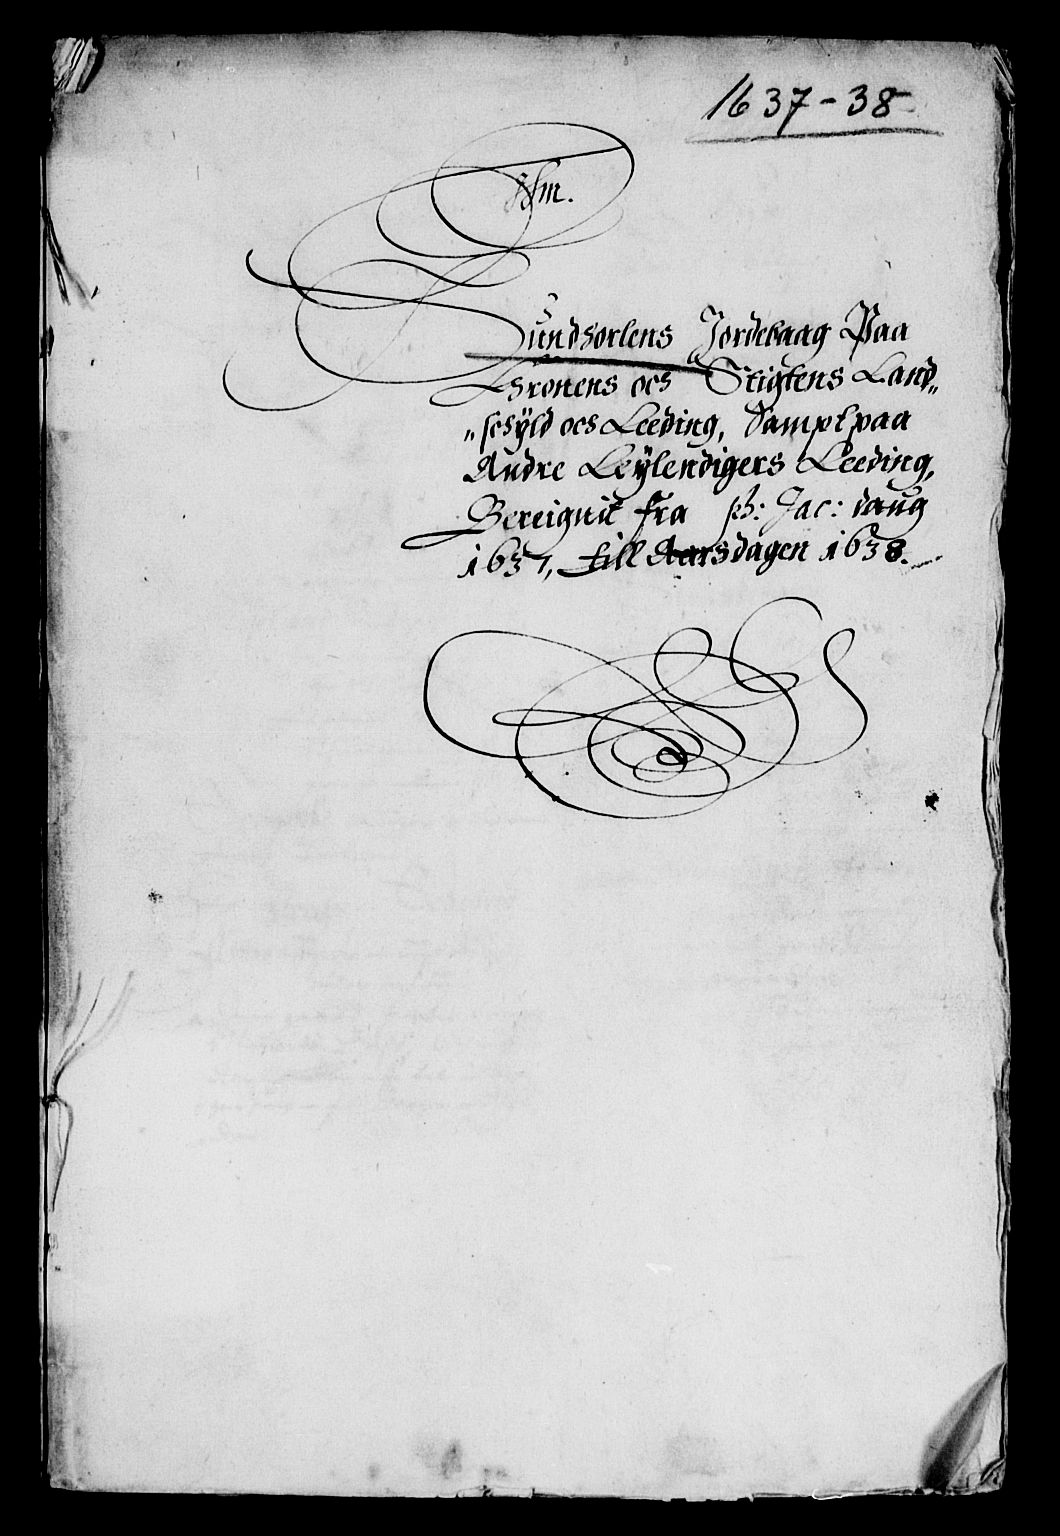 1637-38
Sundhorlens Jordebaag Paa
Chronens och Stigtens Land„
„schÿld och Leeding, Sampt paa
Andre Leÿlendigers Leeding,
Bereignit fra sh: Jac: daug
1637, till Aarsdagen 1638.